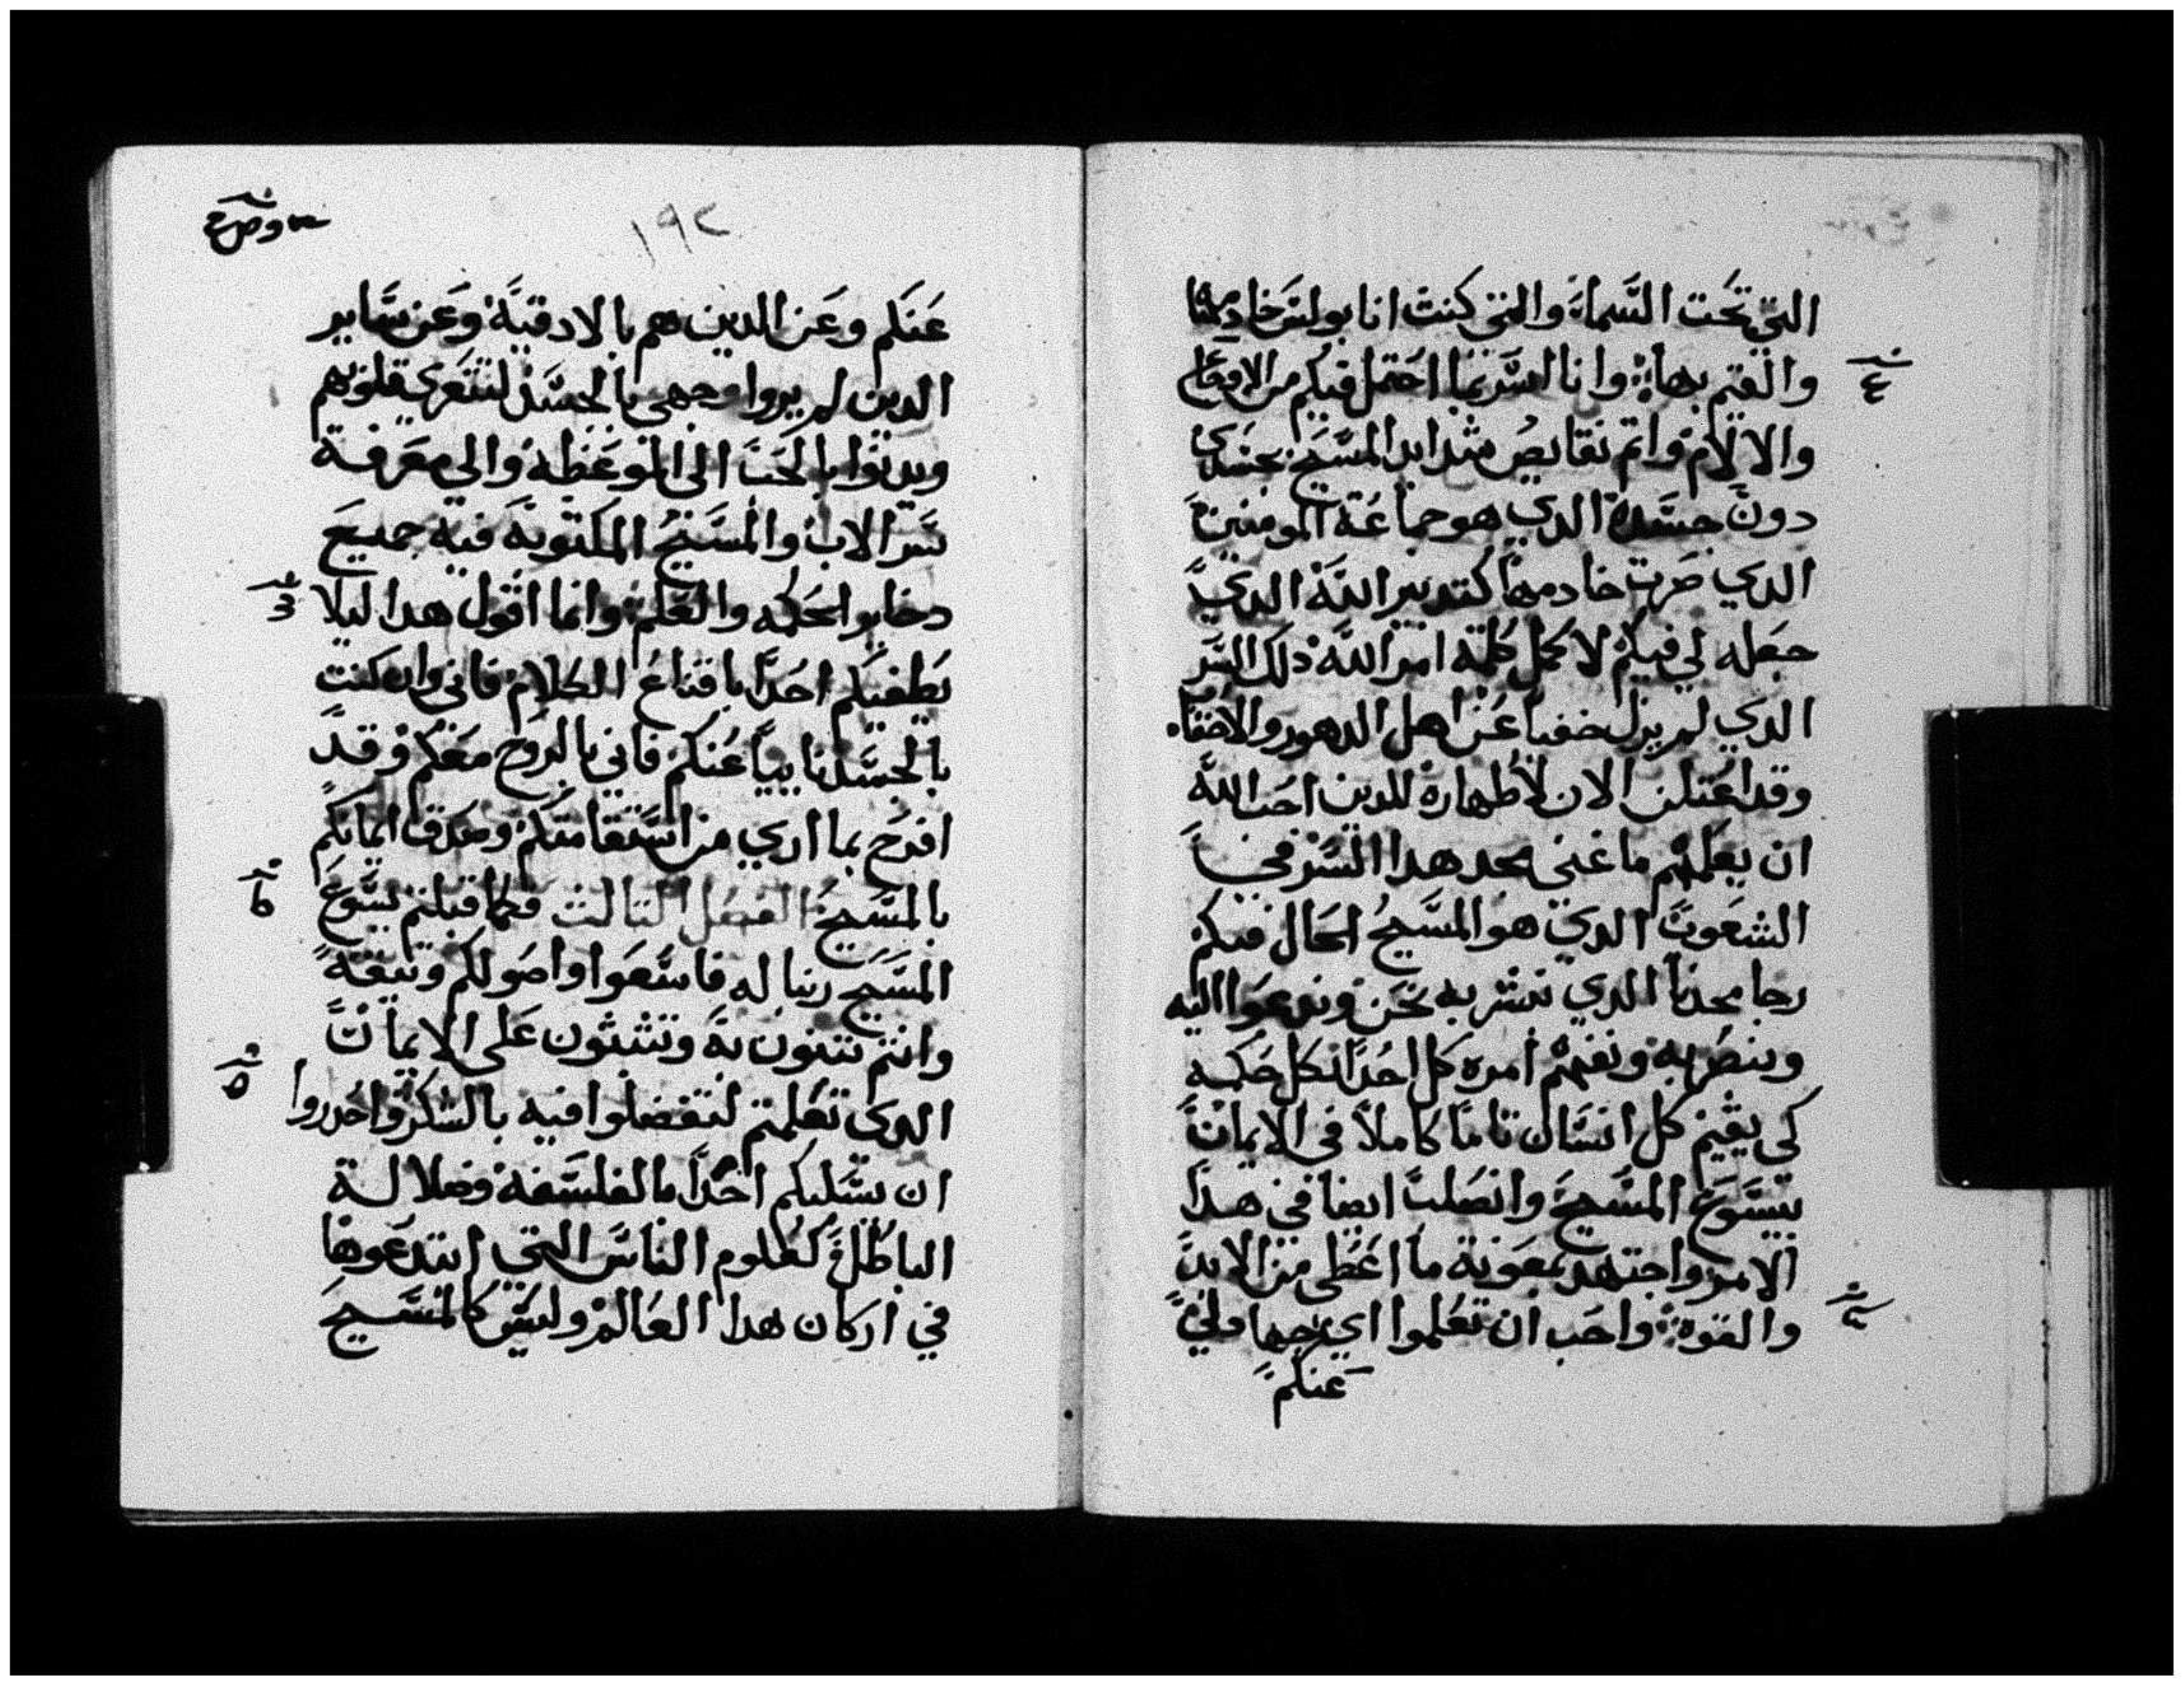 التي تحت السماء والتي كنت انا بولس خادمها
والقيم بها وانا اسر بما احتمل فيكم من الاوجاع
والالام واتم نقايص شدايد المسيح بجسدي
دون جسده الدي هو جماعة المومنين
الدي صرت خادمها كتدبير الله الدي
جعله لي فيكم لاكمل كلمة امر الله دلك السر
الدي لم يزل خفيا عن اهل الدهور والاحقاب
وقد اعتلن الان لاطهاره للدين احب الله
ان يعلمهم ما غني مجد هدا السر في
الشعوب الدي هو المسيح الحال فيكم
رجا مجدنا الدي نبشر به نحن وندعوا اليه
وبنصر به ونفهم امره كل احد بكل حكمه
كي يقيم كل انسان تاما كاملا في الايمان
بيسوع المسيح وانصلب ايضا في هدا
الامر واجتهد بمعونة ما اعطي من الايد
والقوة واحب ان تعلموا اي جهاد لي
عنكم
١٩٢
عنكم وعن الدين هم بالادقية وعن ساير
الدين لم يروا وجهي بالجسد لتتعزي قلوبهم
ويدنوا بالحب الى الموعظه والي معرفة
سر الاب والمسيح المكتوبة فيه جميع
دخاير الحكمه والعلم وانما اقول هدا ليلا
يطفيكم احدا باقناع الكلام فاني وان كنت
بالجسد نابيا عنكم فاني بالروح معكم وقد
افرح بما اري من استقامتكم وصدق ايمانكم
بالمسيح الفصل التالت فكما قبلتم يسوع
المسيح ربنا له فاسعوا واصولكم وتيقة
وانتم تبنون به وتثبثون على الايمان
الدي تعلمتم لتفضلوا فيه بالشكر واحدروا
ان يسلبكم احدا بالفلسفه وضلالة
الباطل كعلوم الناس التي ابتدعوها
في اركان هدا العالم وليس كالمسيح